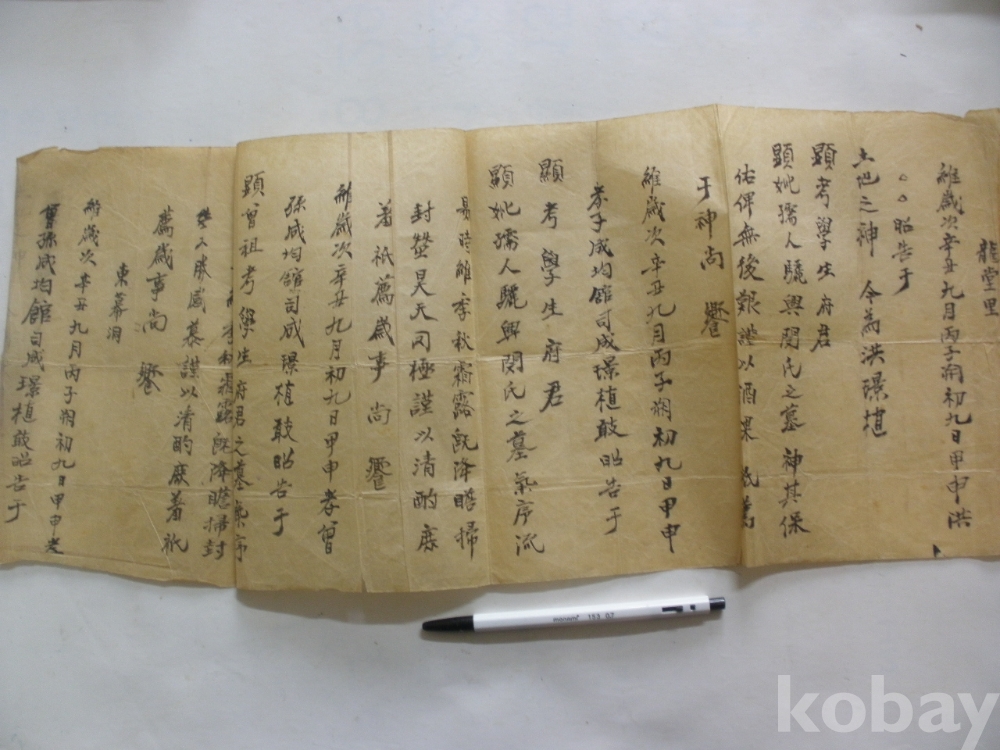 龍堂里
維歲次辛丑九月丙子朔初九日甲申洪
○○昭告于
土地之神 今為洪璟植
顯考學生府君
顯妣孺人驪興閔氏之墓 神其保
佑俾無後艱謹以酒果 祇薦
于神尚 饗
維歲次辛丑九月丙子朔初九日甲申
孝子成均館司成璟植敢昭告于
顯考學生府君
顯妣孺人驪興閔氏之墓氣序流
易時維季秋霜露旣降瞻掃
封塋昊天罔極謹以清酌庶
羞祇薦歲事 尚 饗
維歲次辛丑九月初九日甲申孝曾
孫成均館司成璟植敢昭告于
顯曾祖考學生府君之墓氣序
霜露旣降瞻掃封
不勝感慕謹以清酌庶羞祇
薦歲事尚 饗
東幕洞
維歲次辛丑九月丙子朔初九日甲申孝
曾孫成均館司成璟植敢昭告于
monami 153 0.7
kobay